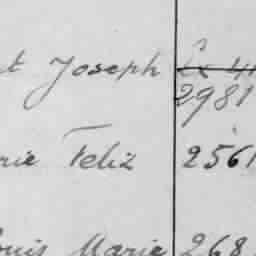 t Joseph
2981
rie Feliz 2561
ouis Marie 268